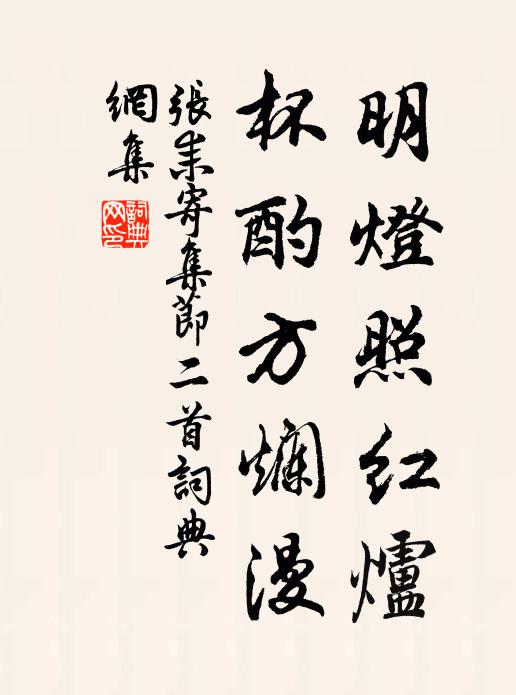 明燈照紅爐
杯酌方爛漫
張耒寄集節二首詞典
網集
詞典
网印